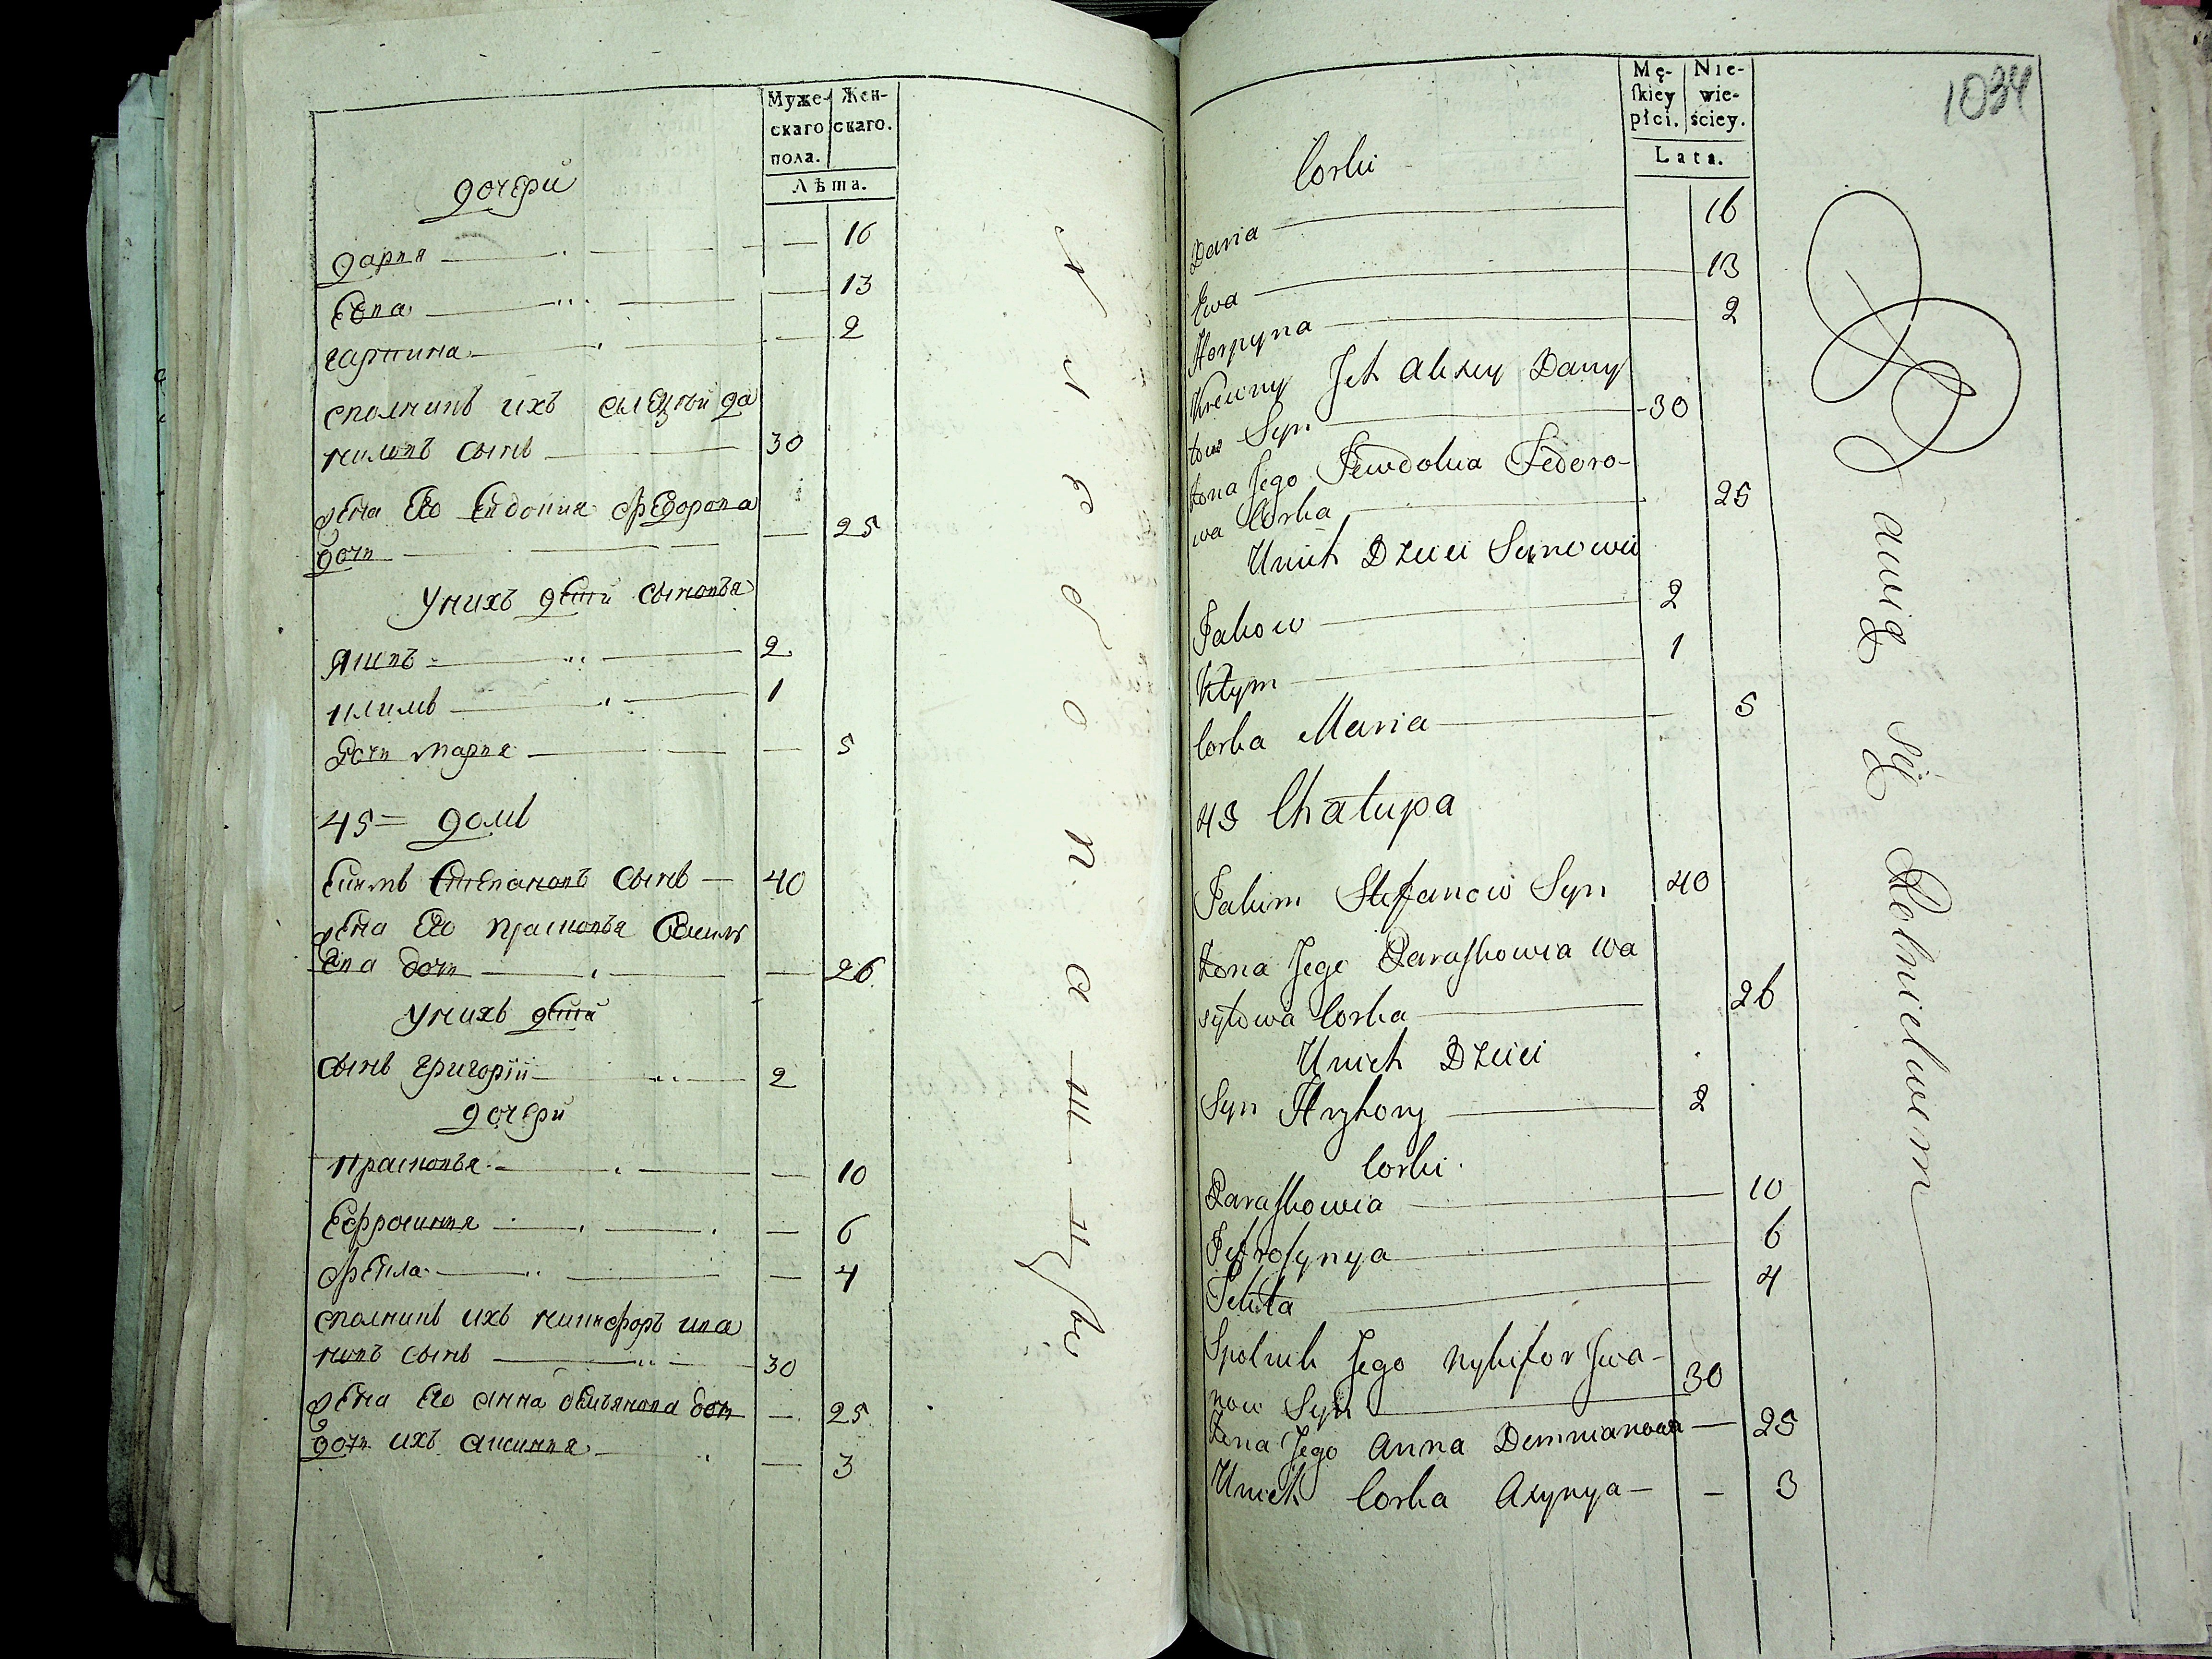 Муже- Жен-
скаго скаго.
пола.
Лѣта.
дочери
дарья — 16
Евва — 13
гарпина — 2
сполникъ ихъ алеѯѣй да
ниловъ сынъ — 30
жена Его Евдокия Федорова
дочь — 25
У нихъ дѣти сыновья
Якивъ — 2
климъ — 1
Дочь Марья — 5
45 = домъ
Екимъ Степановъ сынъ — 40
жена Его Прасковья Васил
Ева дочь — 26
У нихъ дѣти
сынъ григорій — 2
дочери
прасковья — 10
Ефросинья — 6
Фекла — 4
сполникъ ихъ никифоръ ива
новъ сынъ — 30
жена Его анна демьянова дочь — 25
дочь ихъ аксинья — 3
Mę- Nie-
skiey wie-
płci. ściey.
Lata.
1034
Corki
Daria — 16
Ewa — 13
Horpyna — 2
Krewny Ich Alexey Dany
łow Syn — 30
Żona Jego Jewdokia Fedoro-
wa Corka — 25
U nich Dzieci Synowie
Jakow — 2
Kłym — 1
Corka Maria — 5
45 Chałupa
Jakim Stefanow Syn 40
Żona Jego Paraskowia Wa
syłowa Corka — 26
U nich Dzieci
Syn Hryhory — 2
Corki
Paraskowia — 10
Jefrosynya — 6
Fekła — 4
Spolnik Jego Nykifor Iwa-
now Syn — 30
Żona Jego Anna Demianowa — 25
U nich Corka Axynya — — 3
Bawią się Rolnictwem